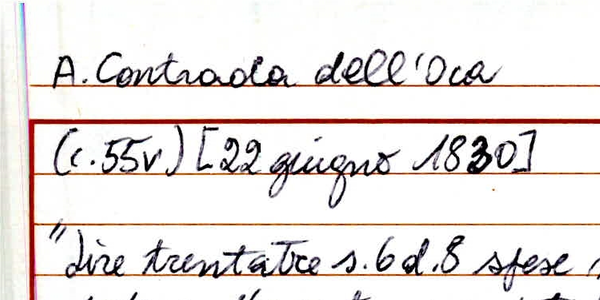 A. Contrada dell'Oca
(c. 55v) [22 giugno 1830]
"Lire trentatre s. 6 d. 8 spese